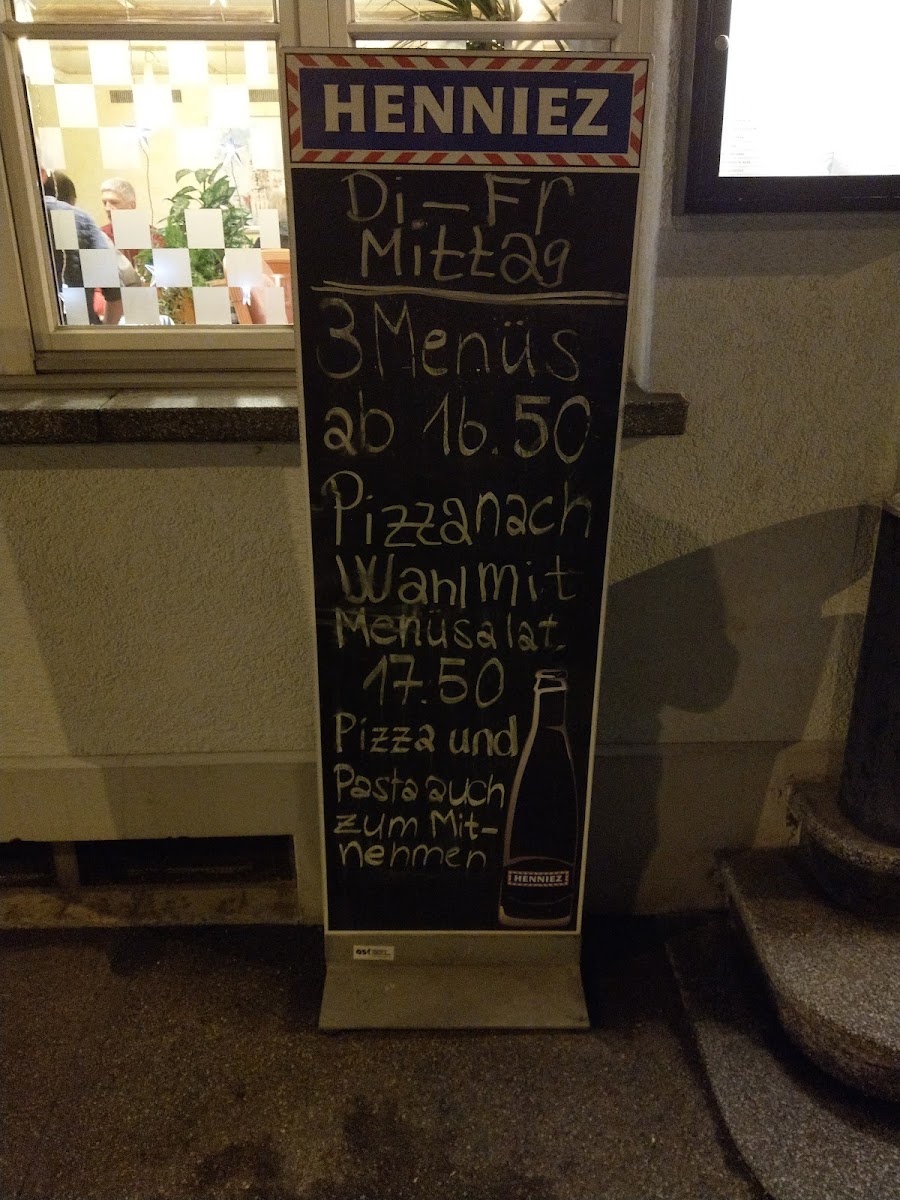 HENNIEZ
Di – Fr
Mittag
3 Menüs
ab 16.50
Pizza nach
Wahl mit
Menüsalat.
17.50
Pizza und
Pasta auch
zum Mit-
nehmen
HENNIEZ